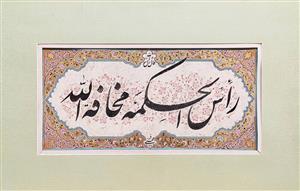 رأس الحکمة مخافة الله